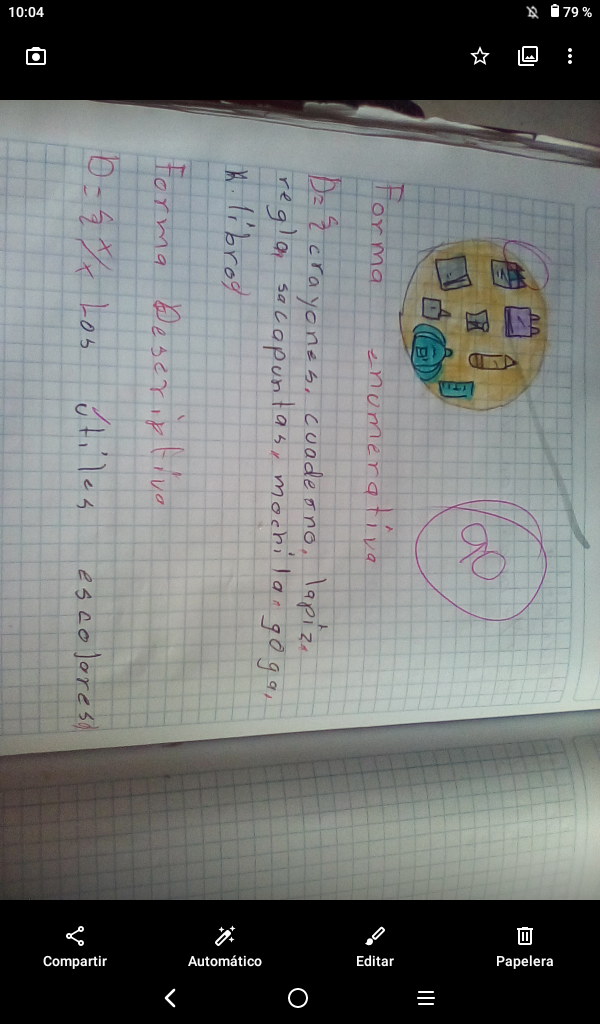 10:04
79 %
90
Forma enumerativa
D = { crayones, cuaderno, lapiz,
regla, sacapuntas, mochila, goga,
libro}
Forma Descriptiva
D = { x/x Los útiles escolares}
Compartir
Automático
Editar
Papelera